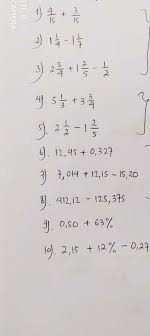 1) 7/15 + 3/15
2) 1 1/4 - 1 1/7
3) 2 3/4 + 1 2/5 - 1/2
4) 5 1/3 + 3 3/4
5) 2 1/2 - 1 3/5
6) 12,45 + 0,327
7) 7,014 + 12,15 - 15,20
8) 412,12 - 125,375
9) 0,50 + 63%
10) 2,15 + 12% - 0,27